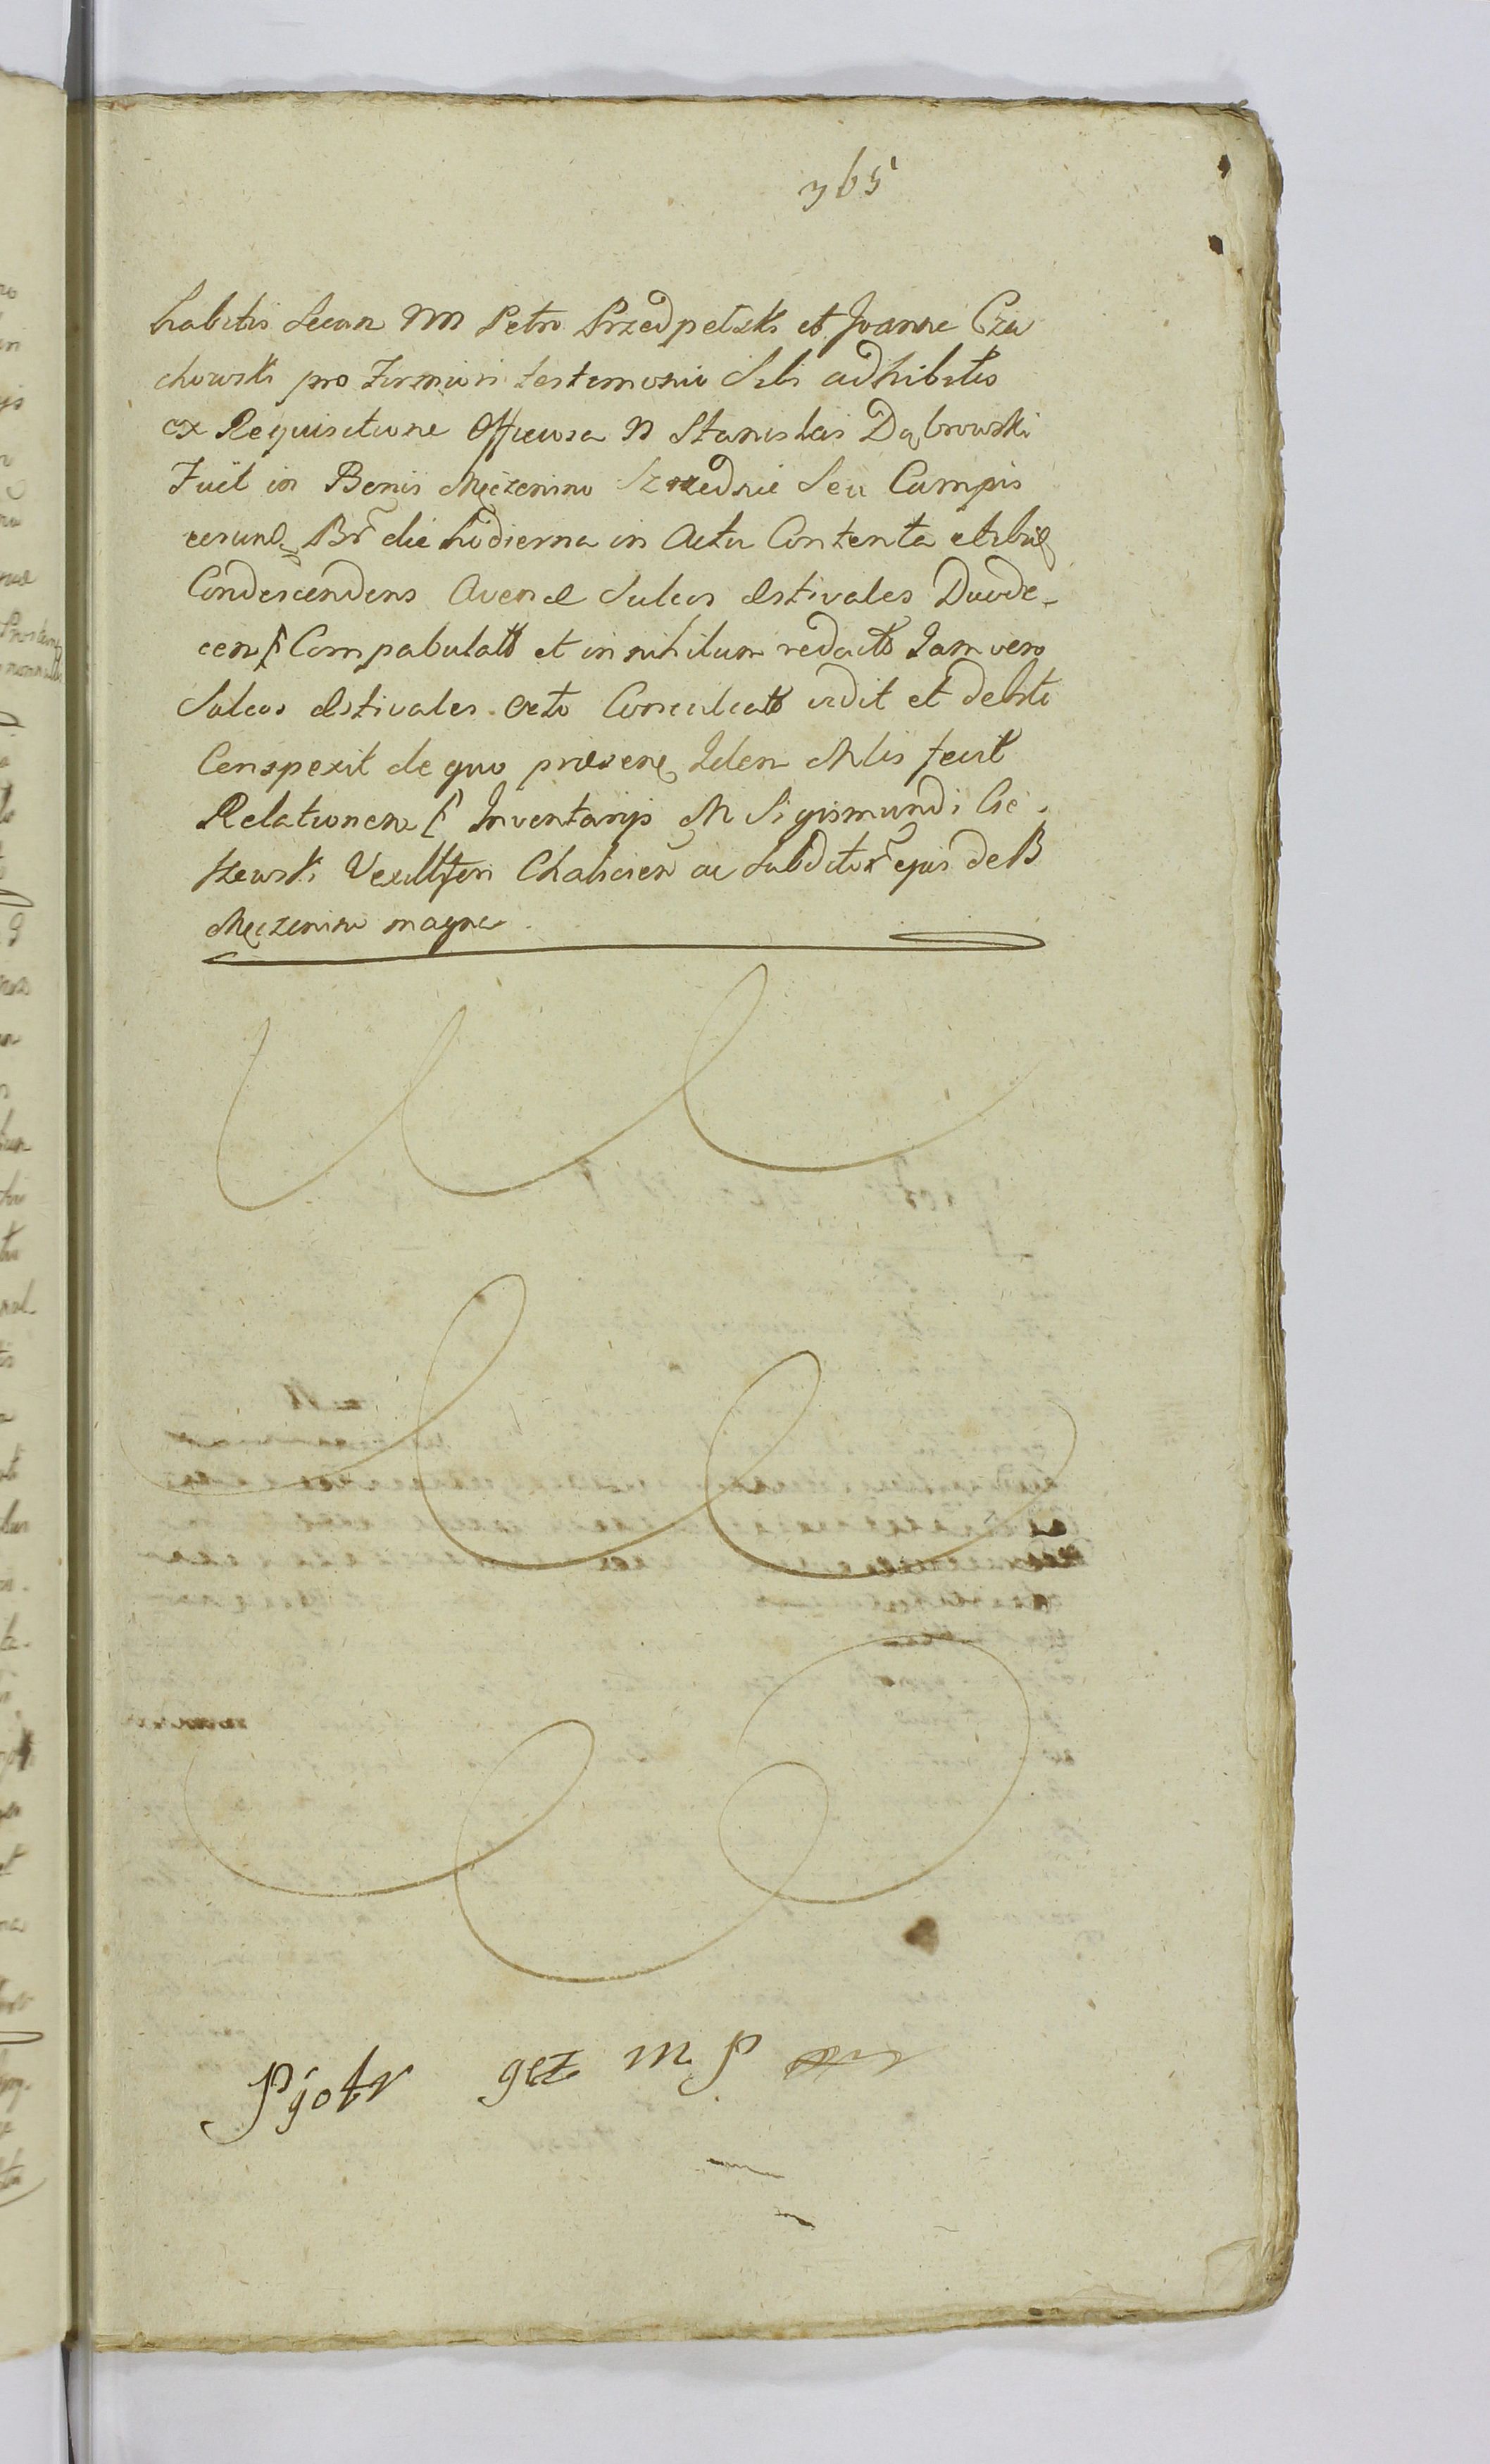 365
habitis Secum NN Petro Przedpełski et Joanne Cza
chowski pro Firmiori testimonio Sibi adhibitis
ex Requisitione Officiosa N Stanislai Dąbrowski
Fuit in Bonis Męczenino Szrednie Seu Campis
eorund Br die hodierna in Actu Contenta et ibiq
Condescendens Avenæ Sulcos æstivales Duode-
cem Compabulatt et in nihilum redactt Jam vero
Sulcos æstivales Octo Conculcatt vidit et debite
Conspexit de quo præsens Idem Mlis fecit
Relationem Inventarijs M Sigismundi Cie
szewski Vexillferi Chalicien ac Subditor ejus de B
Męczenino magna
Pjotr mp